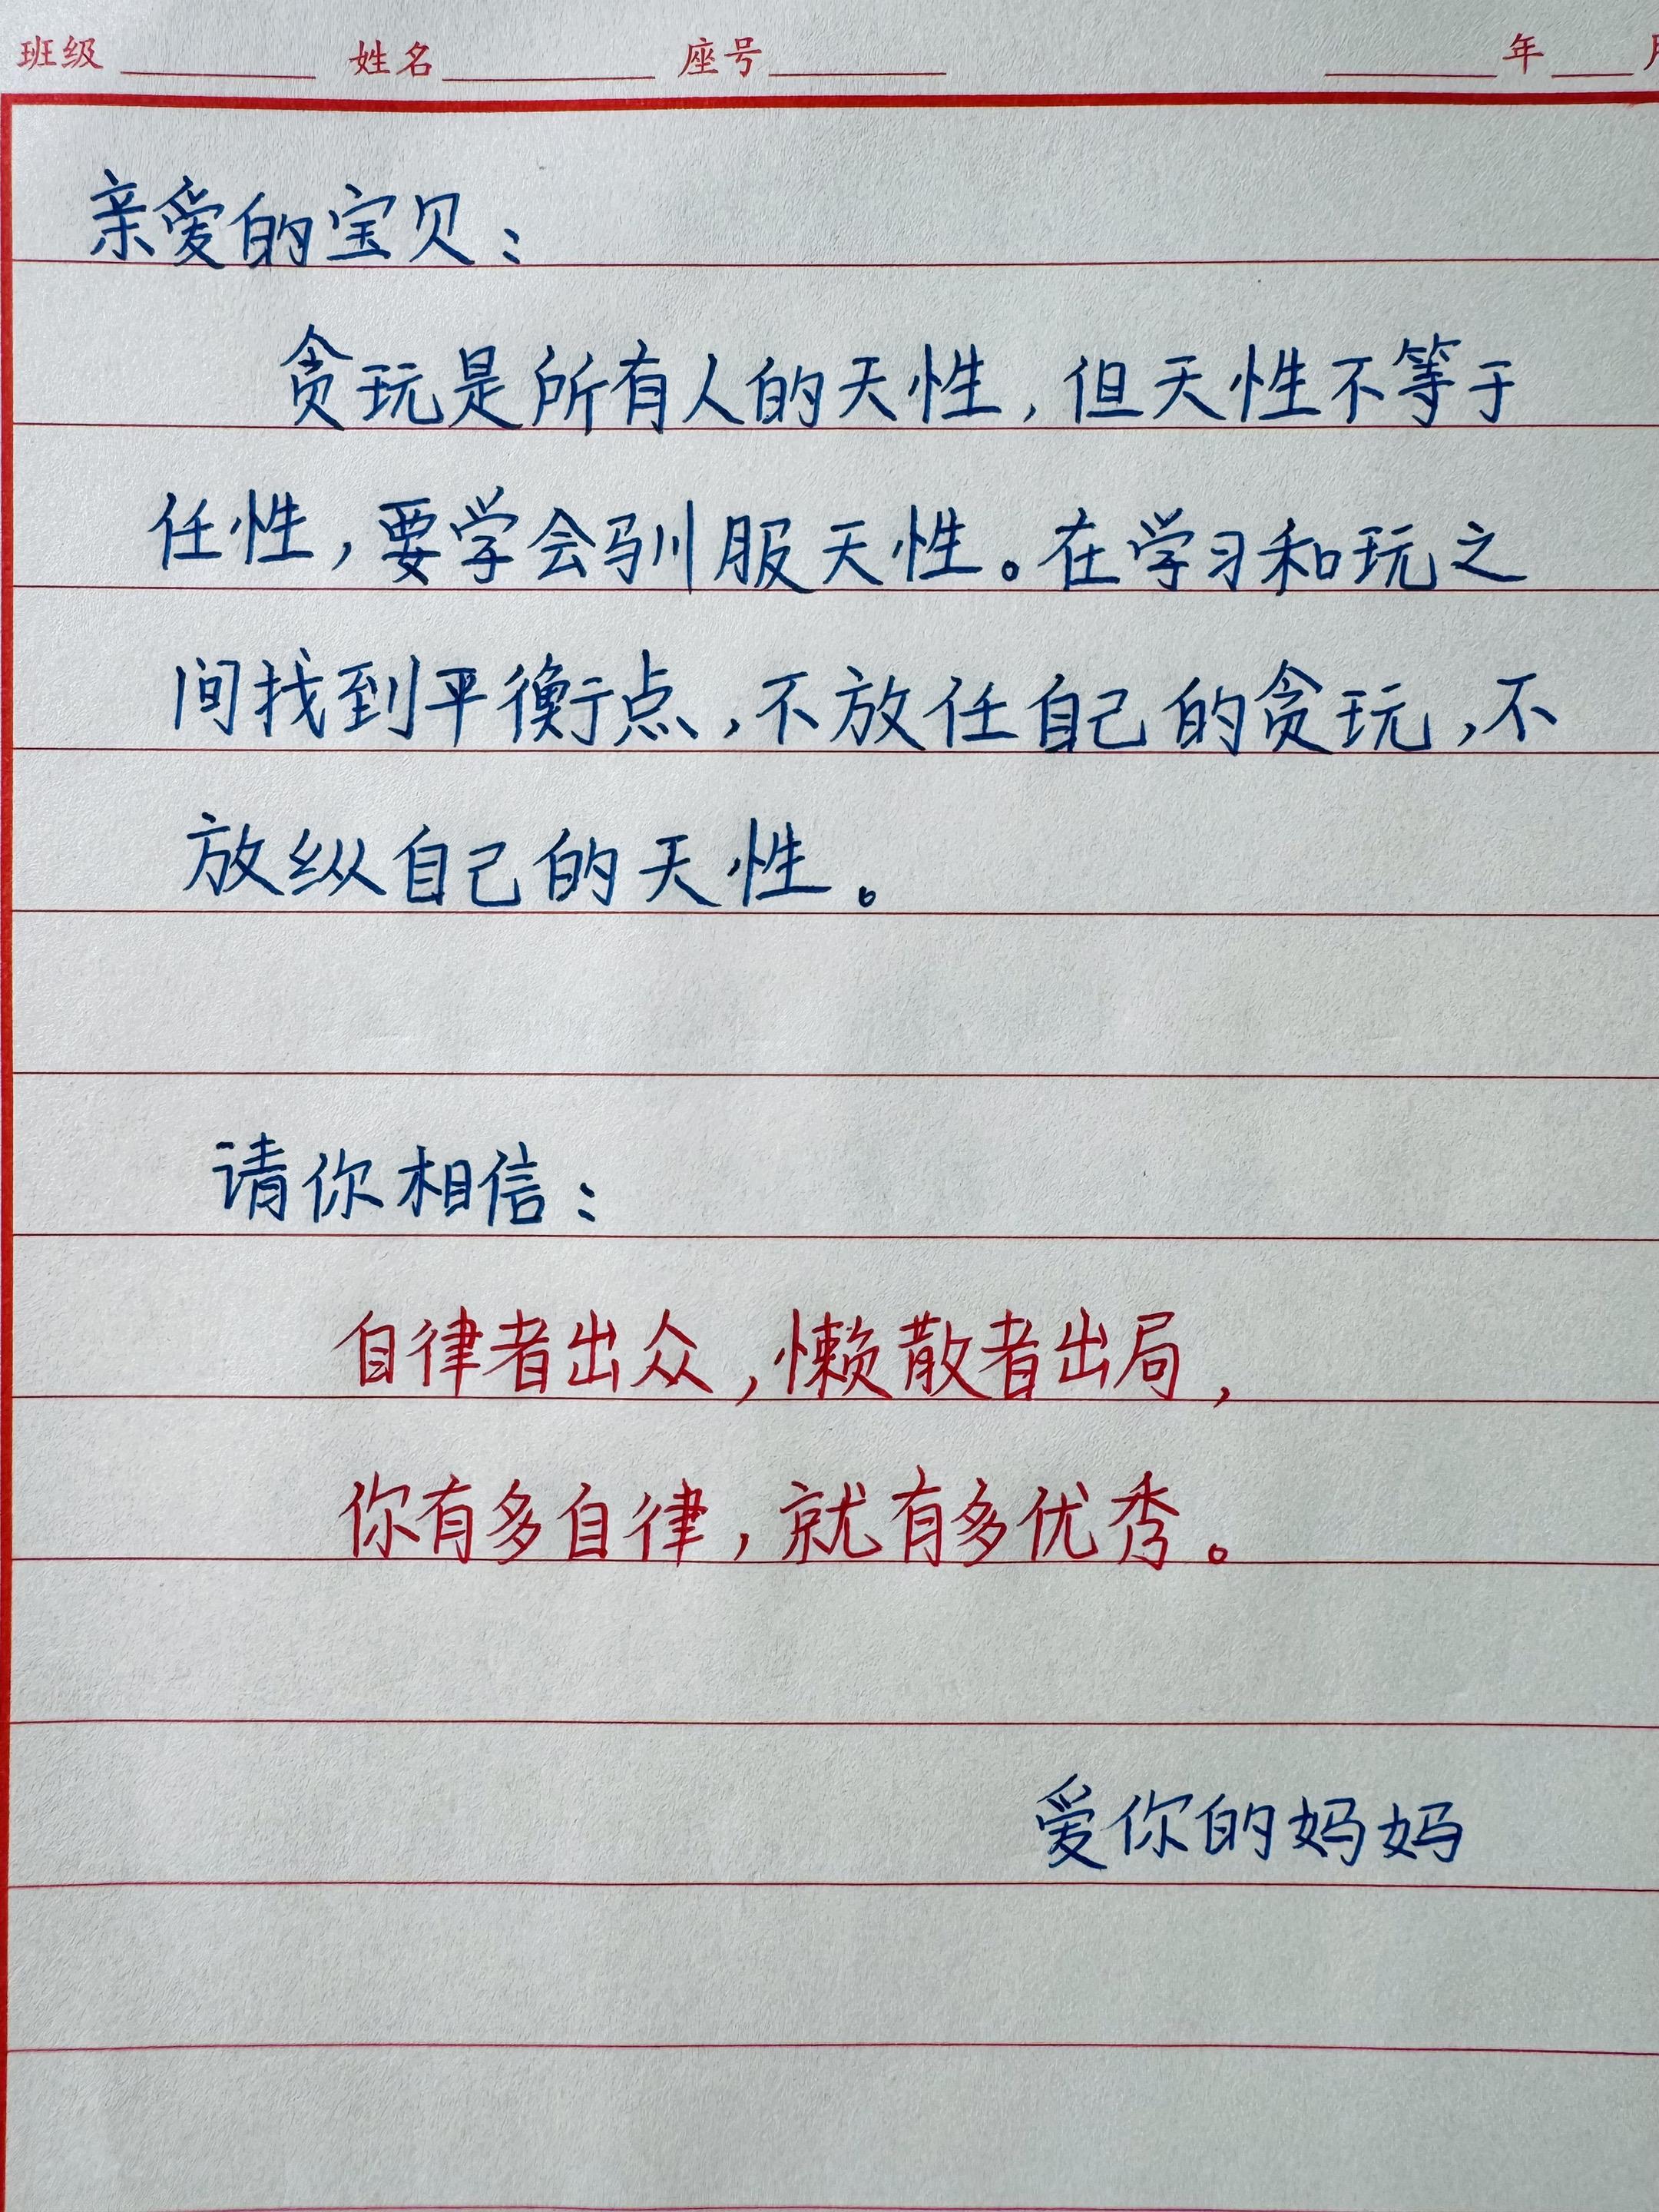 班级 姓名 座号 年
亲爱的宝贝：
贪玩是所有人的天性，但天性不等于
任性，要学会驯服天性。在学习和玩之
间找到平衡点，不放任自己的贪玩，不
放纵自己的天性。
请你相信：
自律者出众，懒散者出局，
你有多自律，就有多优秀。
爱你的妈妈